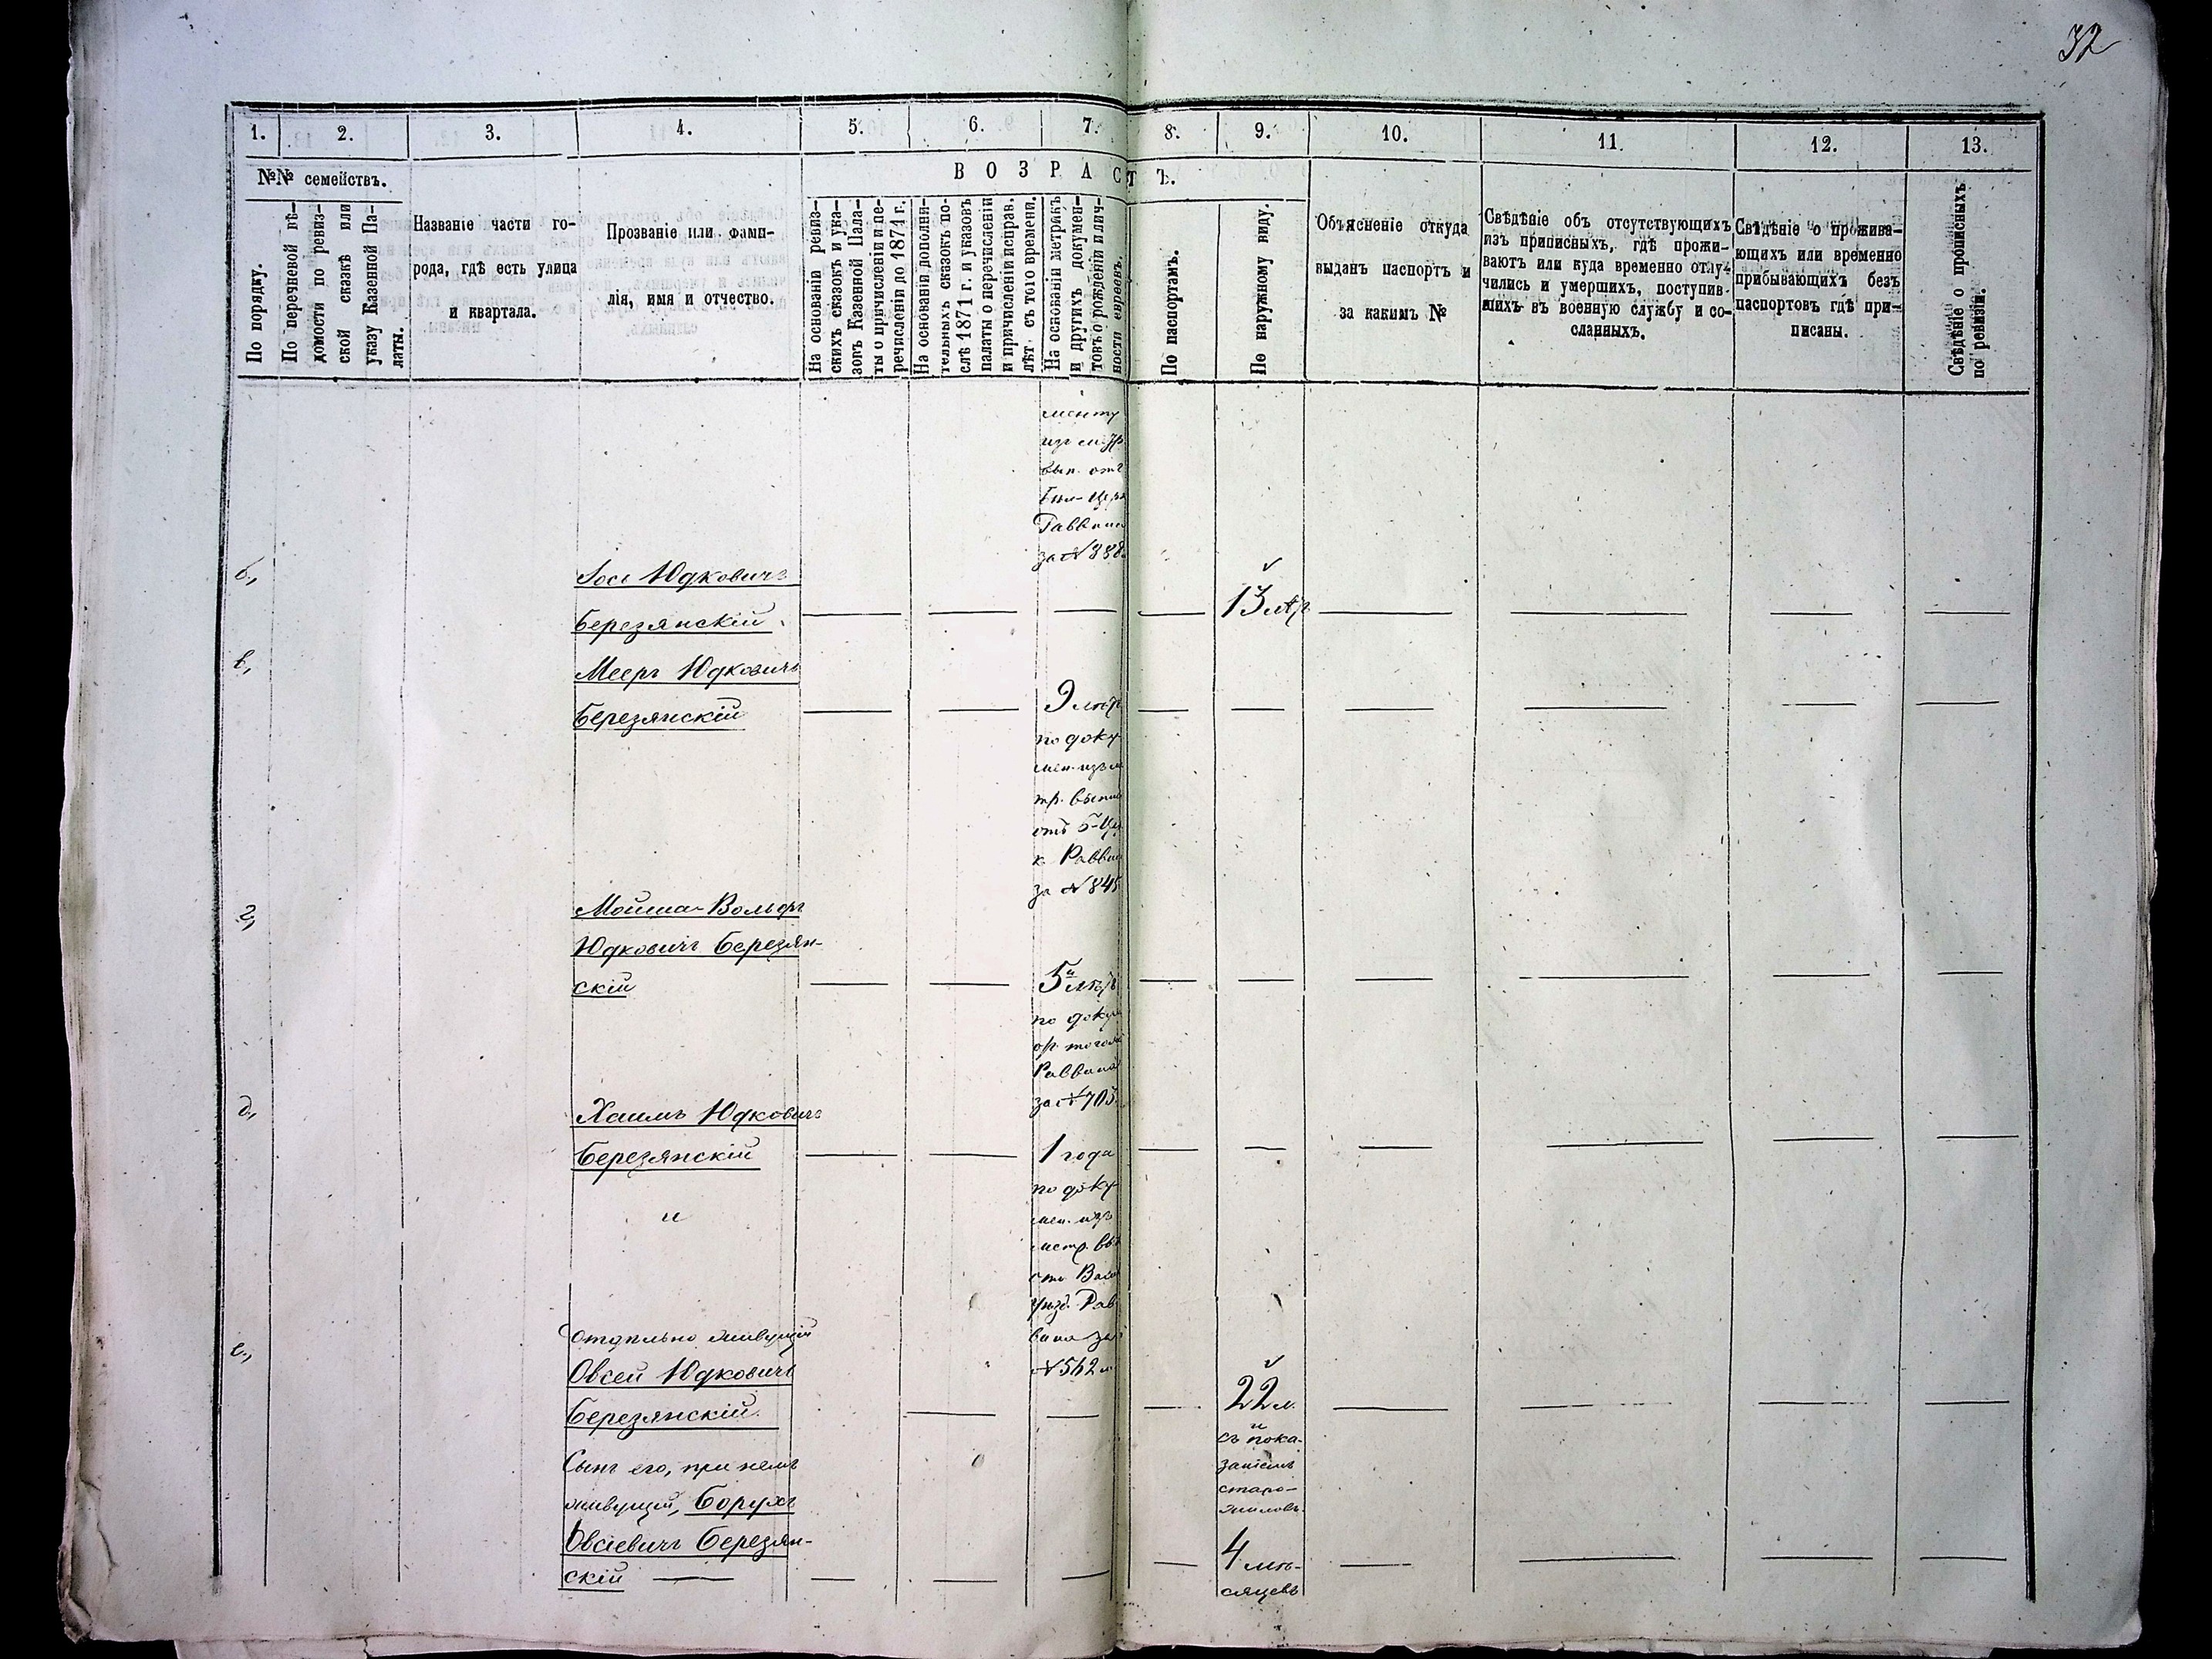 32
1. 2. 3. 4. 5. 6. 7. 8. 9. 10. 11. 12. 13.
№№ семействъ.
ВОЗРАСТЪ.
По порядку.
По перечневой вѣ-
домости по ревиз-
ской сказкѣ или
указу Казенной Па-
латы.
Названіе части го-
рода, гдѣ есть улица
и квартала.
Прозваніе или фами-
лія, имя и отчество.
На основаніи ревиз-
скихъ сказокъ и ука-
зовъ Казенной Пала-
ты о причисленіи и пе-
речисленіи до 1871 г.
На основаніи дополни-
тельныхъ сказокъ по-
слѣ 1871 г. и указовъ
палаты о перечисленіи
и причисленіи исправ.
лѣт съ того времени.
На основаніи метрикъ
и другихъ докумен-
товъ о рожденіи и лич-
ности евреевъ.
По паспортамъ.
По наружному виду.
Объясненіе откуда
выданъ паспортъ и
за какимъ №
Свѣдѣніе объ отсутствующихъ
изъ приписныхъ, гдѣ прожи-
ваютъ или куда временно отлу-
чились и умершихъ, поступив-
шихъ въ военную службу и со-
сланныхъ.
Свѣдѣніе о прожива-
ющихъ или временно
прибывающихъ безъ
паспортовъ гдѣ при-
писаны.
Свѣдѣніе о прописныхъ
по ревизіи.
менту
изъ
вып. отъ
Раввина
за №
б.,
Іось Юдковичъ
Березянскій
13 лѣтъ
в.,
Мееръ Юдковичъ
Березянскій
9 лѣтъ
по доку
мен. изъ м
тр. выпи
отъ Б-Цер
к. Равви
за № 845
г.,
Мойша-Вольфъ
Юдковичъ Березян-
скій
5 лѣтъ
по доку
ор. тогоже
Раввина
за № 705
д.,
Хаимъ Юдковичъ
Березянскій
1 года
по доку-
мен. изъ
метр. вы
отъ Васи
уѣзд. Рав
вина за
№ 562
и
е.,
Отдѣльно живущій
Овсей Юдковичъ
Березянскій.
22 л.
и
съ пока-
заніемъ
старо-
жиловъ.
Сынъ его, при немъ
живущій, Борухъ
Овсіевичъ Березян-
скій
4 мѣ-
сяцевъ